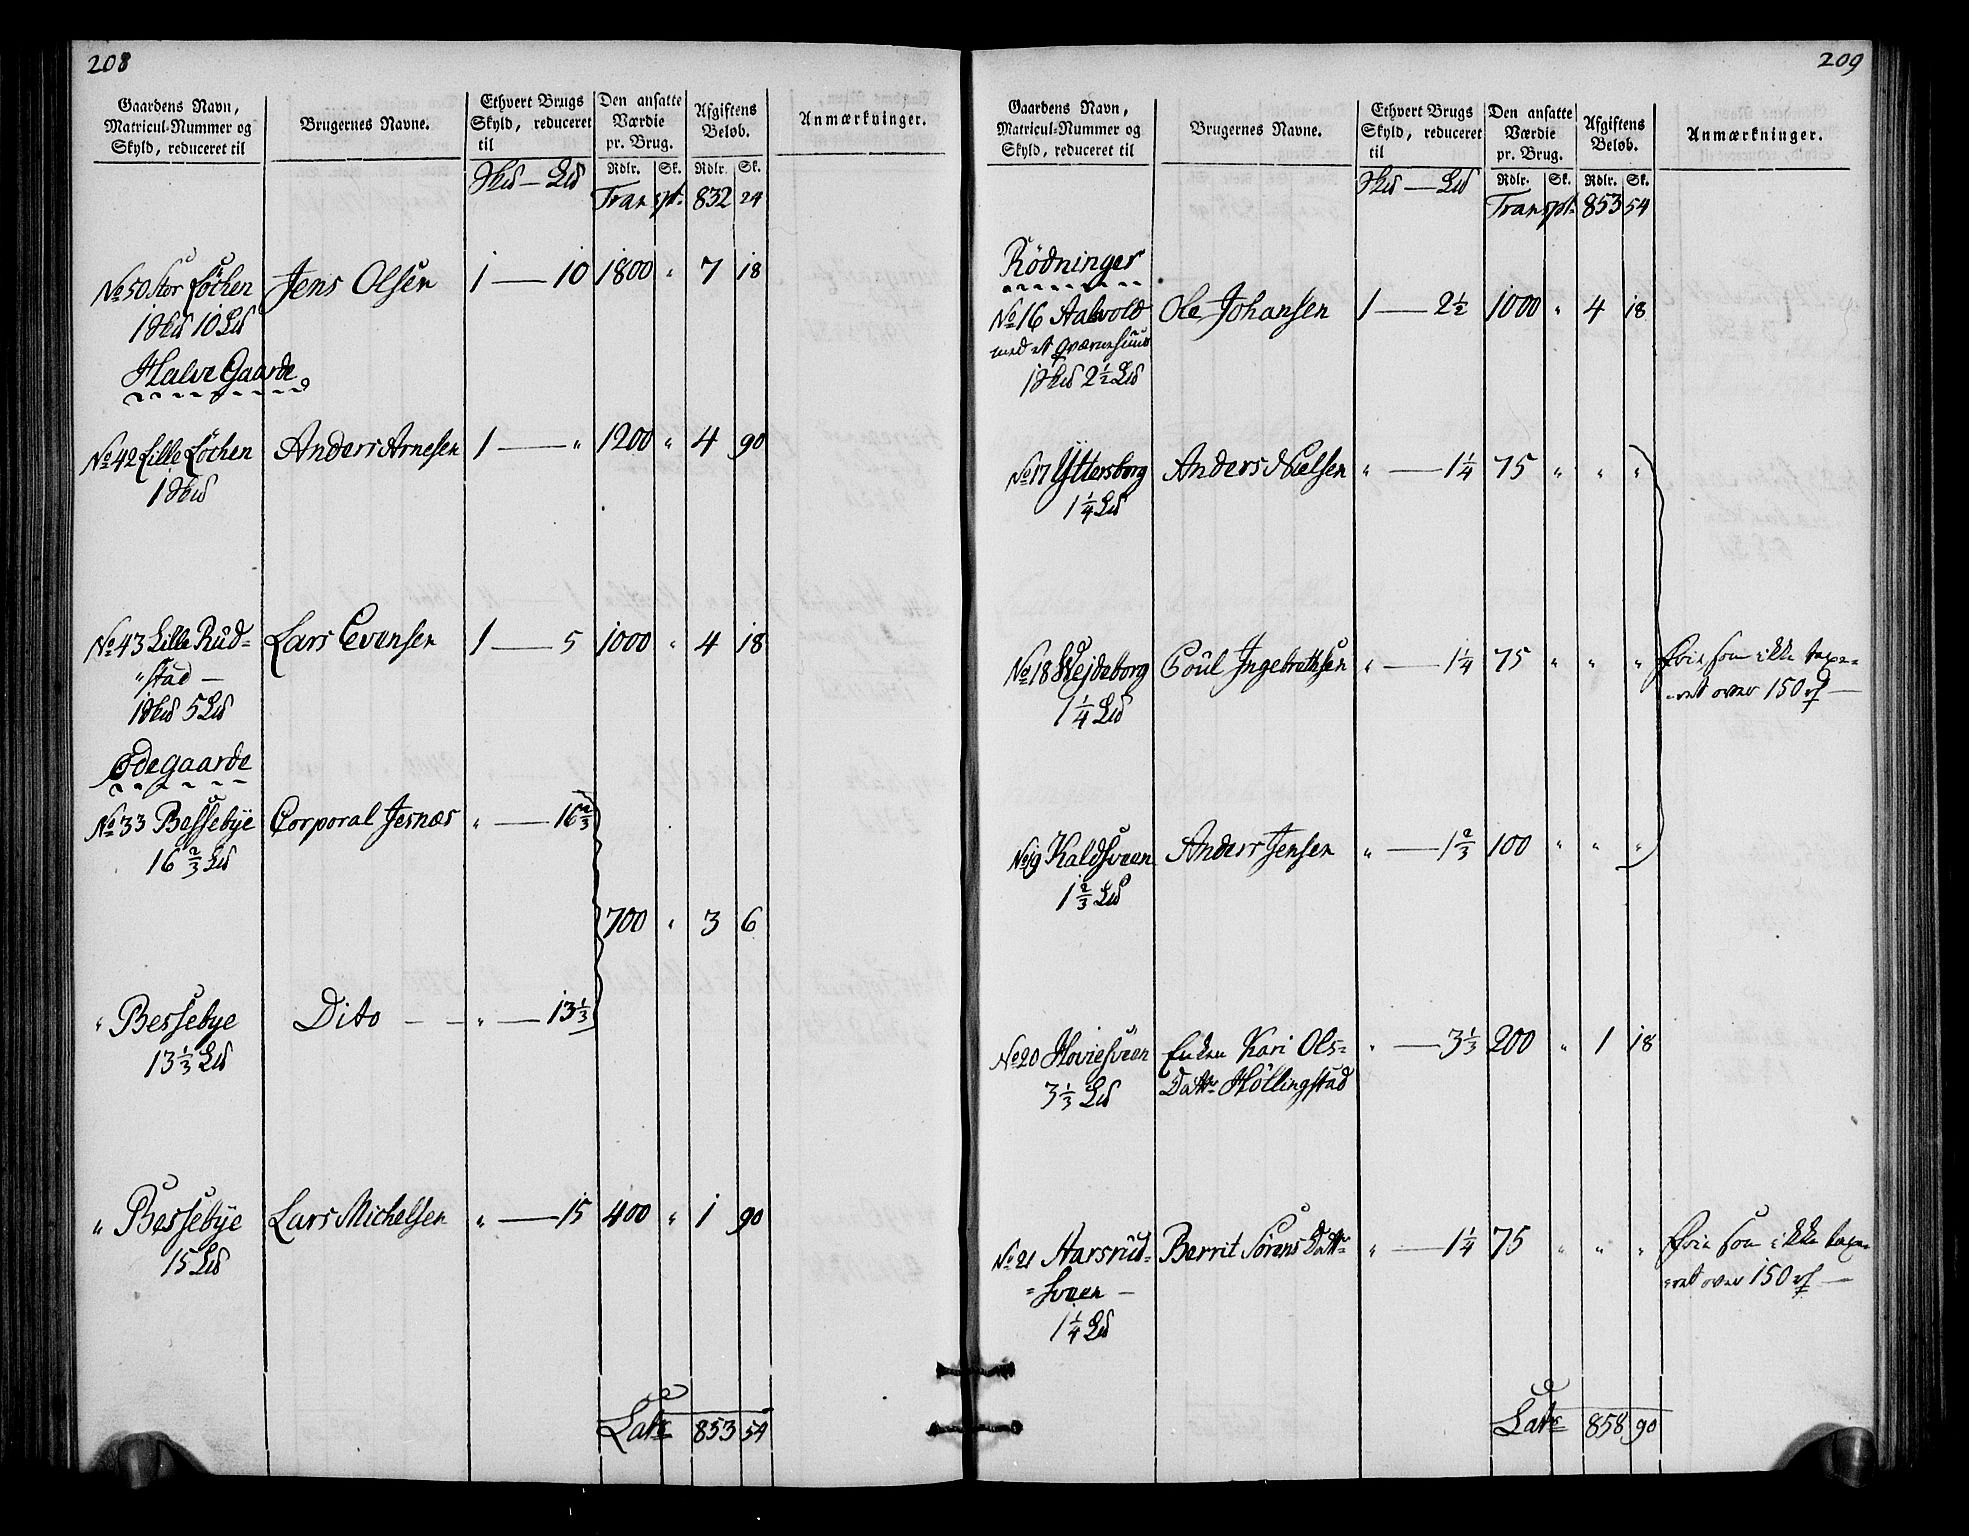 208
Gaardens Navn, Matricul-Nummer og Skyld, reduceret til
Brugernes Navne.
Ethvert Brugs Skyld, reduceret til
Den ansatte Værdie pr. Brug.
Afgiftens Beløb.
Anmærkninger.
Hud — Ld Rdlr. Sk. Rdlr. Sk.
Transpt. 832 24
No 50 Stor Løchen Jens Olsen 1 — 10 1800 " 7 18
1 Hud 10 Ld
Halve Gaarde
No 42 Lille Løchen Anders Arnesen 1 — " 1200 " 4 90
1 Hud
No 43 Lille Rud= Lars Evensen 1 — 5 1000 " 4 18
"stad —
1 Hud 5 Ld
Ødegaarde
No 33 Bessebye Corporal Jernæs " — 16 2/3
16 2/3 Ld
700 " 3 6
" Bessebye Dito — — " — 13 1/3
13 1/3 Ld
" Bessebye Lars Michelsen " — 15 400 " 1 90
15 Ld
Late 853 54
209
Gaardens Navn, Matricul-Nummer og Skyld, reduceret til
Brugernes Navne.
Ethvert Brugs Skyld, reduceret til
Den ansatte Værdie pr. Brug.
Afgiftens Beløb.
Anmærkninger.
Hud — Ld Rdlr. Sk. Rdlr. Sk.
Transpt. 853 54
Rödninger
No 16 Aalvold Ole Johansen 1 — 2 1/2 1000 " 4 18
med et Qværnehuus
1 Hud 2 1/2 Ld
No 17 Yttersborg Anders Nielsen " — 1 1/4 75 " " "
1 1/4 Ld
No 18 Wejdeborg Poul Ingebrethsen " — 1 1/4 75 " " " Frie som ikke taxe=
1 1/4 Ld =ret over 150 rd —
No 19 Kaldsveen Anders Jensen " — 1 2/3 100 " " "
1 2/3 Ld
No 20 Hoviesveen Enken Kari Ols= " — 3 1/3 200 " 1 18
3 1/3 Ld Dattr Höllingstad
No 21 Harsrud= Berrit Sörens Dattr " — 1 1/4 75 " " " Frie som ikke taxe=
=sveen — =ret over 150 rd —
1 1/4 Ld
Late 858 90